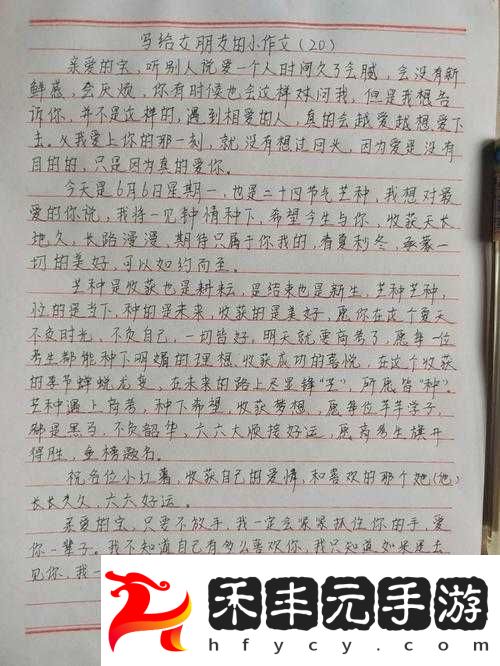 写给女朋友的小作文(20)
亲爱的宝,听别人说爱一个人时间久了会腻,会没有新
鲜感,会厌烦,你有时候也会这样对问我,但是我想告
诉你,并不是这样的,遇到相爱的人,真的会越爱越想爱下
去。从我爱上你的那一刻,就没有想过回头,因为爱是没有
目的的,只是因为真的爱你。
今天是6月6日星期一,也是二十四节气芒种,我想对最
爱的你说,我将一见钟情种下,希望今生与你,收获天长
地久,长路漫漫,期待只属于你我的,春夏秋冬,承蒙一
切的美好,可以如约而至。
芒种是收获也是耕耘,是结束也是新生,芒种芒种,
忙的是当下,种的是未来,收获的是美好,愿你在这个夏天
不负时光,不负自己,一切皆好,明天就要高考了,愿每一位
考生都能种下明媚的理想,收获成功的喜悦,在这个收获
的季节蝉蜕龙变,在未来的路上尽显锋"芒",所愿皆"种"。
芒种遇上高考,种下希望,收获梦想,愿每位莘莘学子,
都是黑马,不负韶华,六六大顺接好运,愿高考生旗开
得胜,金榜题名。
祝各位小红薯,收获自己的爱情,和喜欢的那个她(他)
长长久久,六六好运。
亲爱的宝,只要不放手,我一定会紧紧抓住你的手,爱
你一辈子。我不知道自己有多么喜欢你,我只知道如果是去
见你,我一
禾丰元手游
hfycy.com